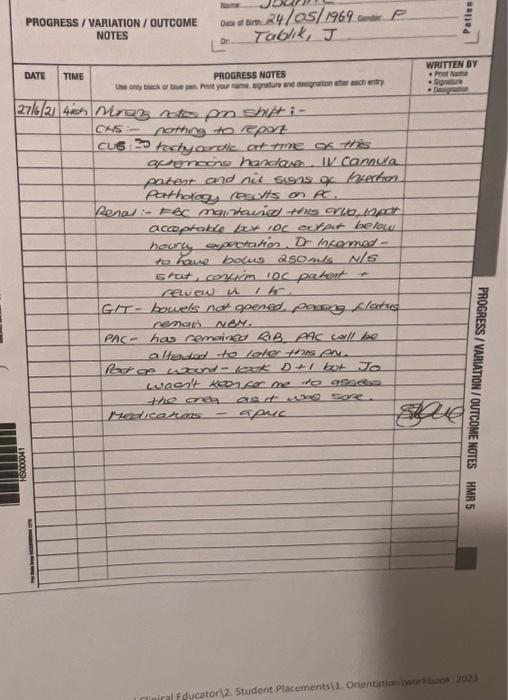 Name
PROGRESS / VARIATION / OUTCOME
NOTES
Date of Birth 24/05/1969 Gender F
Dr Tablik, J
Patien
DATE TIME PROGRESS NOTES
Use only black or blue pen. Print your name, signature and designation after each entry
WRITTEN BY
• Print Name
• Signature
• Designation
27/6/21 Nursing notes pm shift :-
CNS :- nothing to report
tachycardic at time of this
afternoons handover. IV Cannula
patent and nil signs of infection
Pathology results on PC.
Renal :- FBC maintained this input
acceptable but IDC output below
hourly expectation. Dr Informed -
to have bolus 250mls N/S
stat, confirm IDC patent +
review in 1 hr.
GIT - bowels not opened, passing flatus
remain NBM.
PAC - has remained RIB, PAC will be
attended to later this
Post op wound - look D+I but Jo
wasn't keen for me to assess
the area as it was sore.
Medications -
PROGRESS / VARIATION / OUTCOME NOTES HMR 5
HS000041
Clinical Educator\2. Student Placements\1. Orientation\workbook 2023